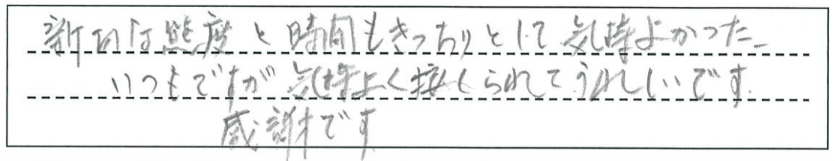 新切な態度と時間もきっちりとして気持よかった
いつもですが気持よく接しられてうれしいです.
感謝です